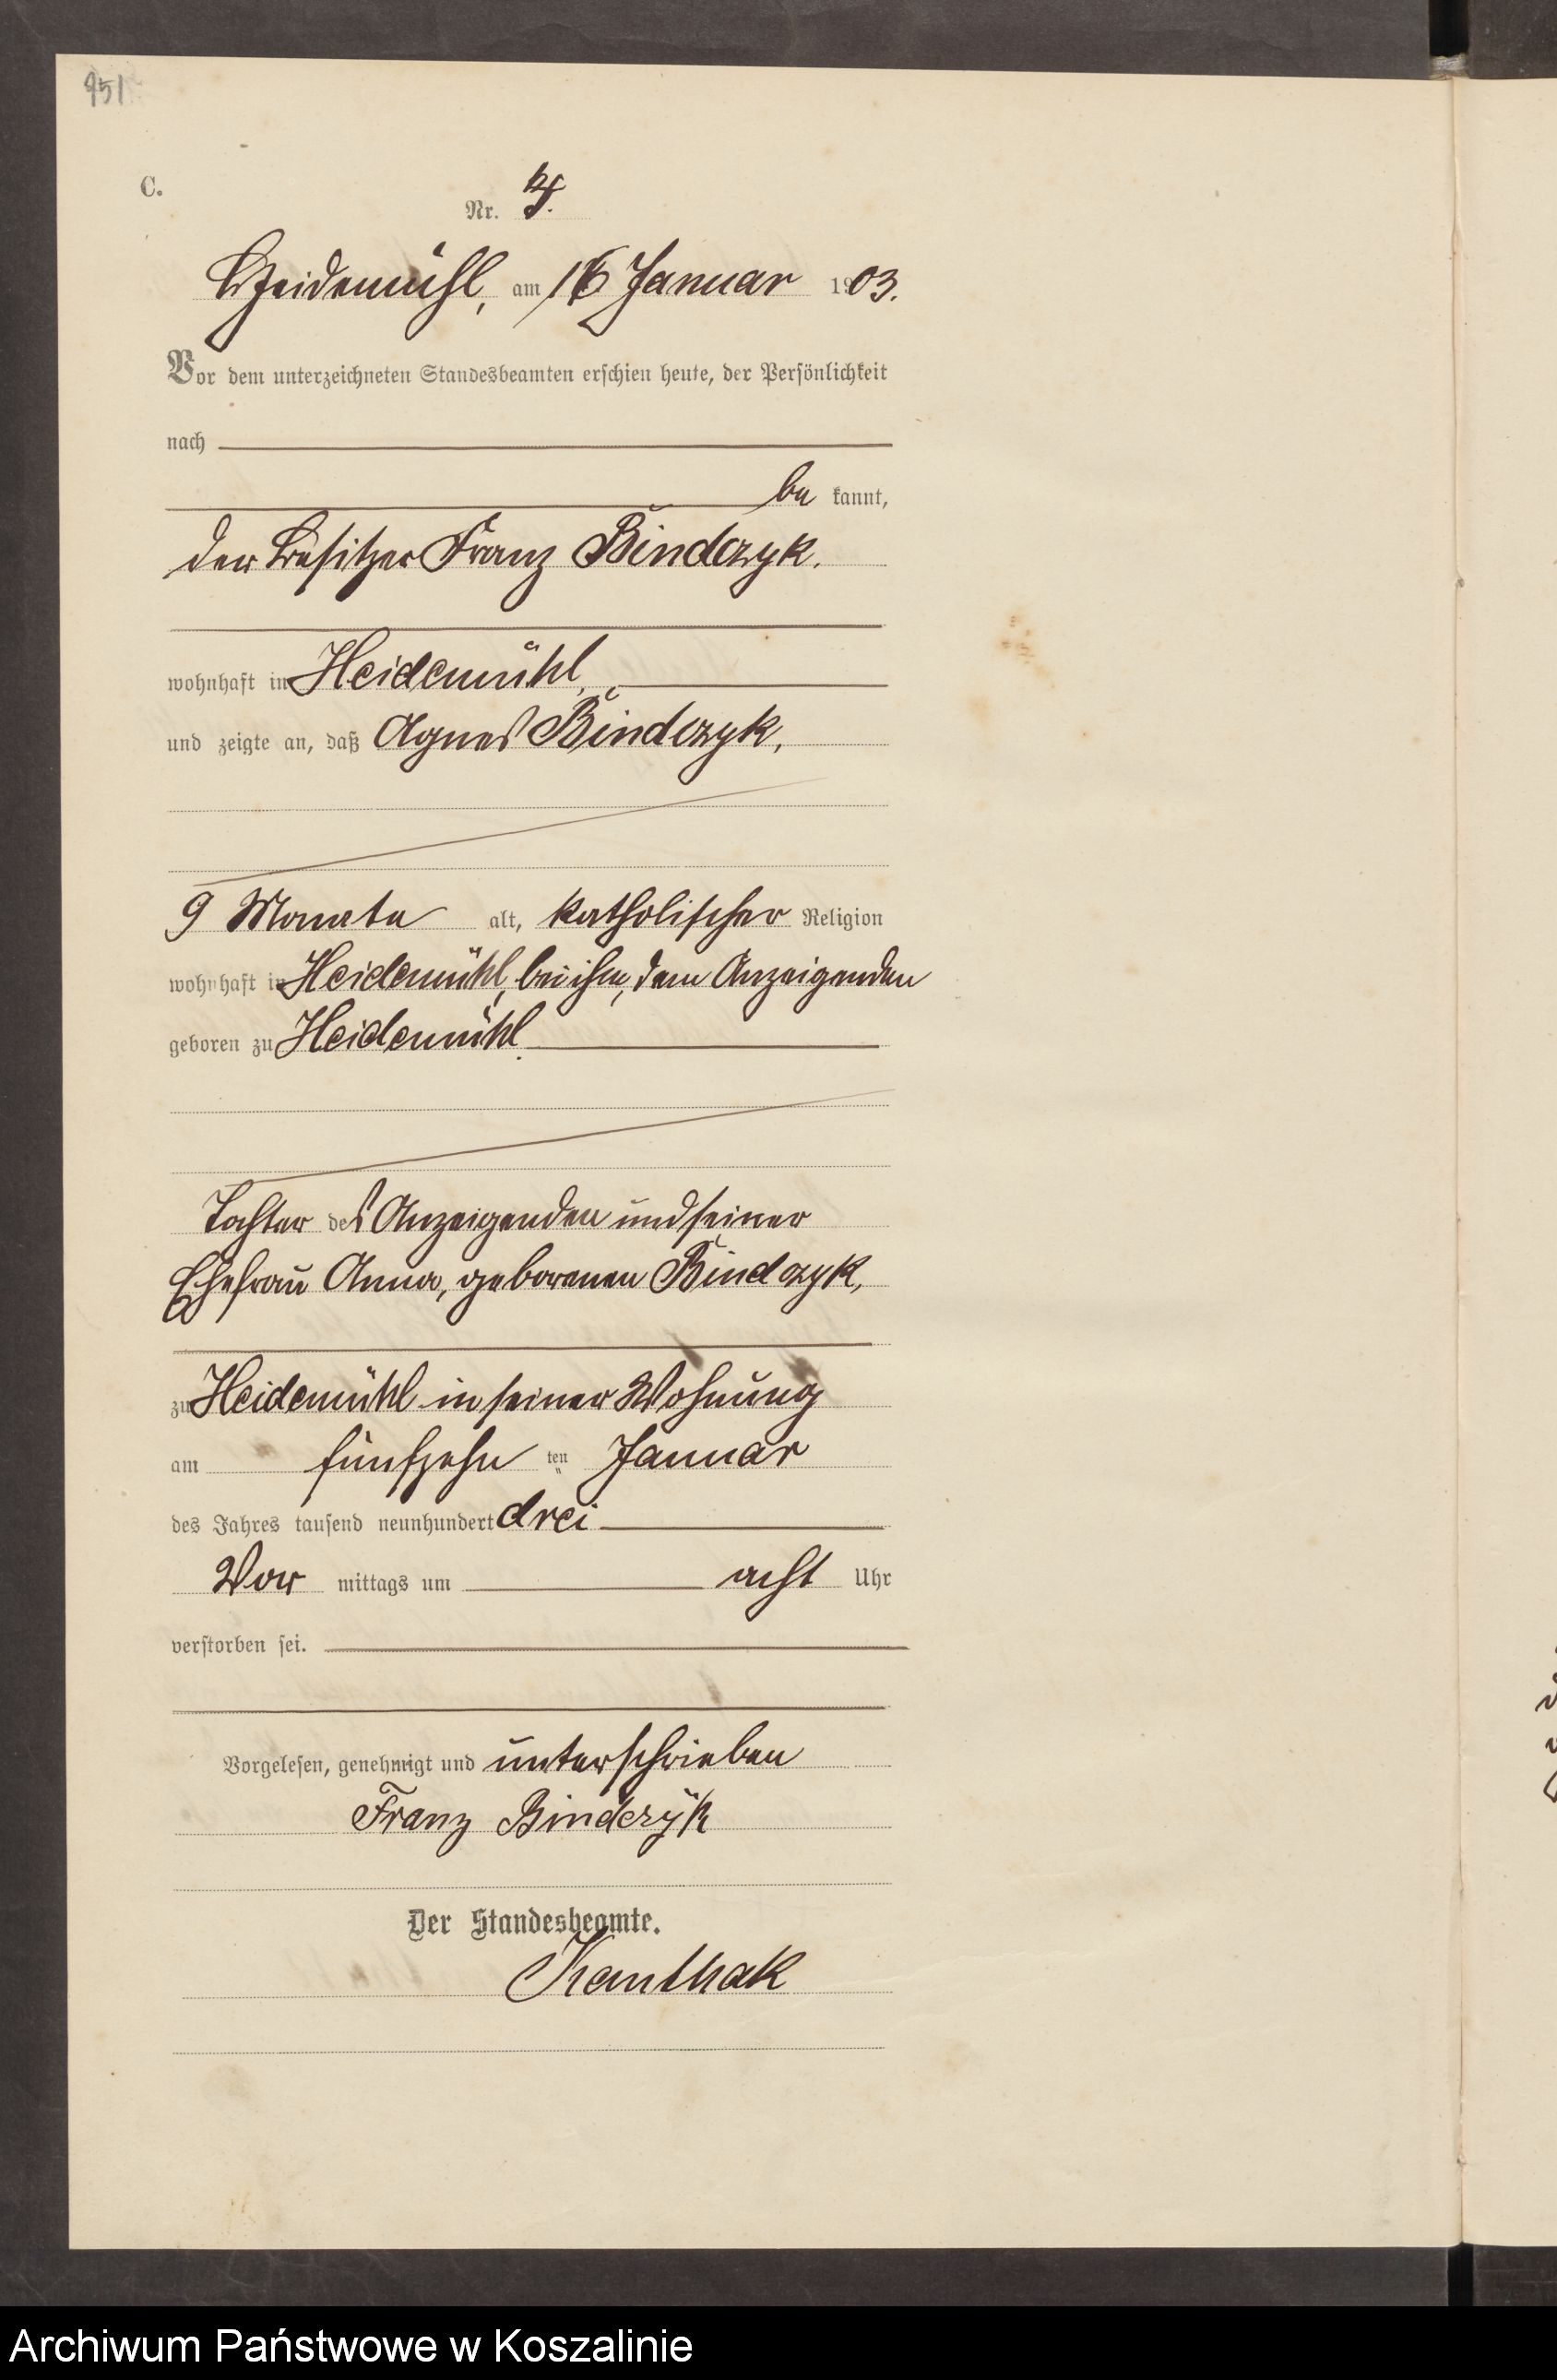 951
C.
Nr. 4.
Heidemühl, am 16 Januar 1903.
Vor dem unterzeichneten Standesbeamten erschien heute, der Persönlichkeit
nach
be kannt,
der Besitzer Franz Bindczyk.
wohnhaft in Heidemühl,
und zeigte an, daß Agnes Bindczyk,
9 Monate alt, katholischer Religion
wohnhaft in Heidemühl, bei ihm, dem Anzeigenden
geboren zu Heidemühl.
Tochter des Anzeigenden und seiner
Ehefrau Anna, geborenen Bindczyk,
zu Heidemühl in seiner Wohnung
am fünfzehn ten Januar
des Jahres tausend neunhundert drei
Vor mittags um acht Uhr
verstorben sei.
Vorgelesen, genehmigt und unterschrieben
Franz Bindczÿk
Der Standesbeamte.
Kanthak
Archiwum Państwowe w Koszalinie